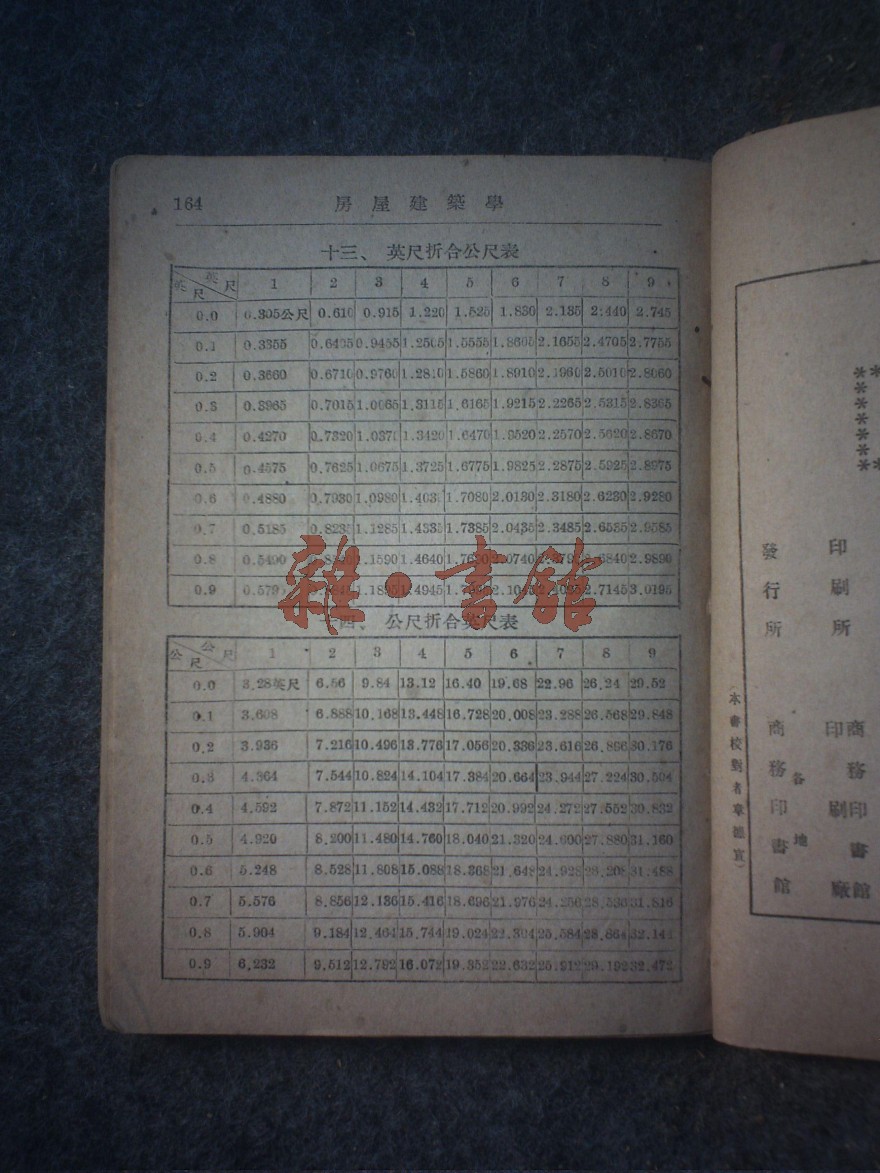 164 房屋建築學
十三、英尺折合公尺表
英尺 英尺 1 2 3 4 5 6 7 8 9
0.0 0.305公尺 0.610 0.915 1.220 1.525 1.830 2.135 2.440 2.745
0.1 0.3355 0.6405 0.9455 1.2505 1.5555 1.8605 2.1655 2.4705 2.7755
0.2 0.3660 0.6710 0.9760 1.2810 1.5860 1.8910 2.1960 2.5010 2.8060
0.3 0.3965 0.7015 1.0065 1.3115 1.6165 1.9215 2.2265 2.5315 2.8365
0.4 0.4270 0.7320 1.0370 1.3420 1.6470 1.9520 2.2570 2.5620 2.8670
0.5 0.4575 0.7625 1.0675 1.3725 1.6775 1.9825 2.2875 2.5925 2.8975
0.6 0.4880 0.7930 1.0980 1.4030 1.7080 2.0130 2.3180 2.6230 2.9280
0.7 0.5185 0.8235 1.1285 1.4335 1.7385 2.0435 2.3485 2.6535 2.9585
0.8 0.5490 1.1590 1.4640 2.6840 2.9890
0.9 1.4945 2.7145 3.0195
雜·書館
公尺折合英尺表
公尺 公尺 1 2 3 4 5 6 7 8 9
0.0 3.28英尺 6.56 9.84 13.12 16.40 19.68 22.96 26.24 29.52
0.1 3.608 6.888 10.168 13.448 16.728 20.008 23.288 26.568 29.848
0.2 3.936 7.216 10.496 13.776 17.056 20.336 23.616 26.896 30.176
0.3 4.364 7.544 10.824 14.104 17.384 20.664 23.944 27.224 30.504
0.4 4.592 7.872 11.152 14.432 17.712 20.992 24.272 27.552 30.832
0.5 4.920 8.200 11.480 14.760 18.040 21.320 24.600 27.880 31.160
0.6 5.248 8.528 11.808 15.088 18.368 21.648 24.928 28.208 31.488
0.7 5.576 8.856 12.136 15.416 18.696 21.976 24.256 28.536 31.816
0.8 5.904 9.184 12.464 15.744 19.024 22.304 25.584 28.864 32.144
0.9 6.232 9.512 12.782 16.072 19.352 22.632 25.912 29.192 32.472
印刷所 商務印書館
印刷廠
發行所 各地
商務印書館
(本書校對者章德宣)